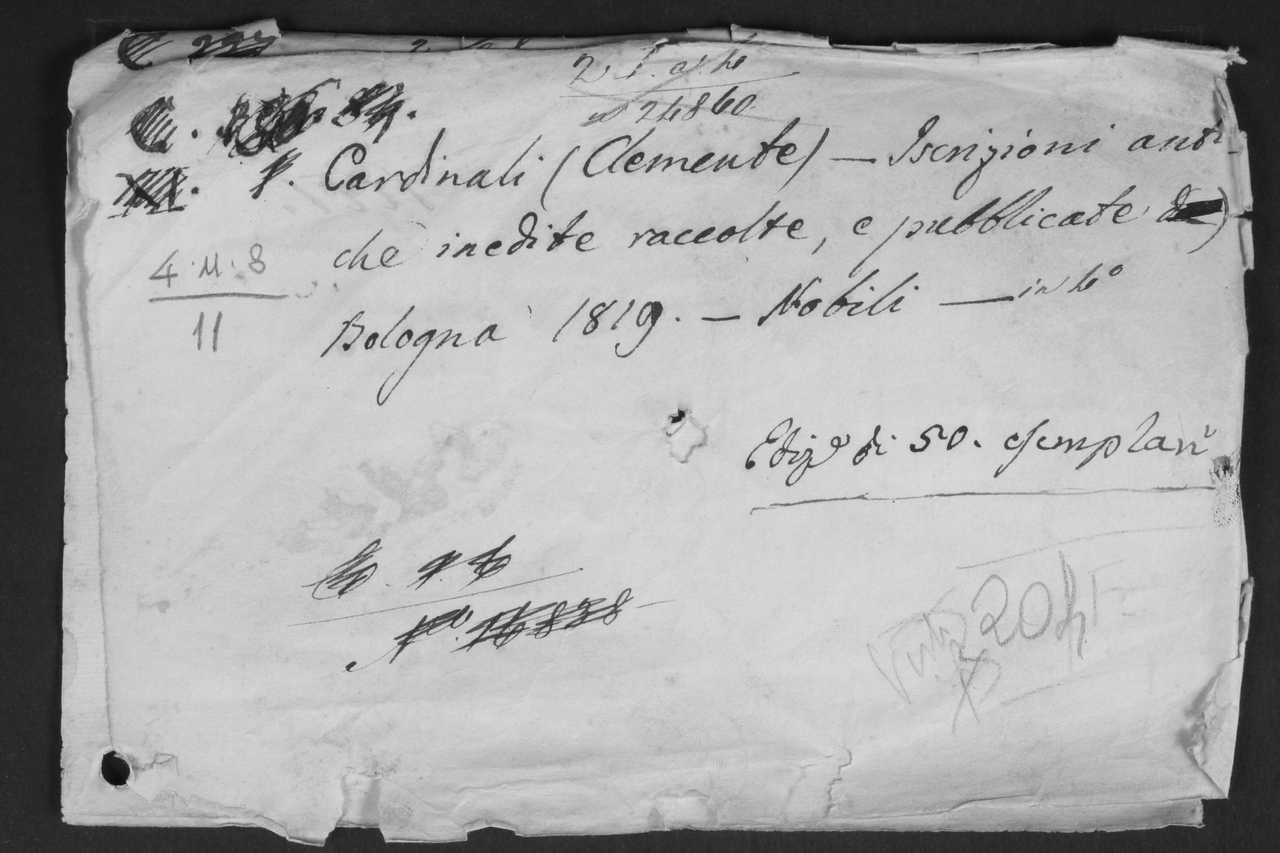 24860
Cardinali (Clemente) — Iscrizioni anti-
che inedite raccolte, e pubblicate
4.11.8
11
Bologna 1819. — Nobili — in 4º
Ediz.e di 50. esemplari
Nº. 16838
204